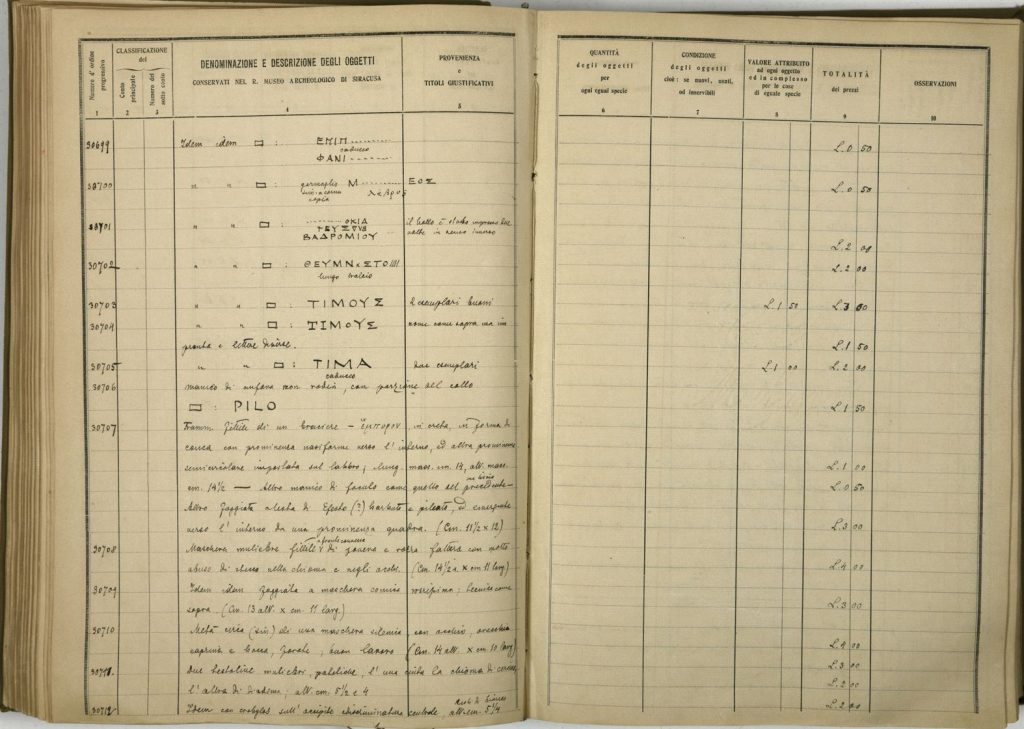 Numero d'ordine progressivo
CLASSIFICAZIONE del
Conto principale
Numero del sotto conto
DENOMINAZIONE E DESCRIZIONE DEGLI OGGETTI
CONSERVATI NEL R. MUSEO ARCHEOLOGICO DI SIRACUSA
PROVENIENZA
e
TITOLI GIUSTIFICATIVI
QUANTITÀ
degli oggetti
per
ogni egual specie
CONDIZIONE
degli oggetti
cioè: se nuovi, usati,
od inservibili
VALORE ATTRIBUITO
ad ogni oggetto
ed in complesso
per le cose
di eguale specie
TOTALITÀ
dei prezzi
OSSERVAZIONI
1 2 3 4 5 6 7 8 9 10
30699 Idem idem : ΕΠΙΠ
caduceo
ΦΑΝΙ L. 0 50
30700 " " : Μ ΕΟΣ L. 0 50
30701 " " : ΟΚΙΔ
ΒΑΔΡΟΜΙΟΥ L. 2 00
30702 " " : ΘΕΥΜΝ ΣΤΟ L. 2 00
lungo tralcio
30703 " " : ΤΙΜΟΥΣ 2 esemplari buoni L. 1 50 L. 3 00
30704 " " : ΤΙΜΟΥΣ nome come sopra ma im
pronta e lettere diverse. L. 1 50
30705 " " : ΤΙΜΑ due esemplari L. 1 00 L. 2 00
caduceo
30706 manico di anfora non rodia, con porzione del collo
: PILO L. 1 50
30707 Framm. fittile di un braciere - ἔμπυρον, in creta, in forma di
conca con prominenza nasiforme verso l'interno, ed altra prominenza
semicircolare impostata sul labbro; lung. mass. cm. 14, alt. mass. L. 1 00
cm. 14½ — Altro manico di focolo come quello del precedente - L. 0 50
Altro foggiato a testa di Efesto (?) barbato e pileato, ed emergente
verso l'interno da una prominenza quadra. (Cm. 11½ x 12) L. 3 00
30708 Maschera muliebre fittile di giovena e rozza fattura con molto
abuso di stecco nella chioma e negli occhi. (Cm. 14½ a. x cm 11 larg) L. 4 00
30709 Idem idem foggiata a maschera comica rossissima; tecnica come
sopra. (Cm. 13 alt. x cm. 11 larg) L. 3 00
30710 Metà circa (sin) di una maschera silenica, con occhio, orecchia
caprina e bocca, forate, buon lavoro (Cm. 14 alt. x cm 10 larg) L. 4 00
30711 due testoline muliebri, policrome, l'una cinta la chioma di L. 3 00
l'altra di diadema; alt. cm. 5½ e 4 L. 2 00
30712 Idem con sull'occipite e discriminatura centrale, alt. cm. 5¼ L. 2 00